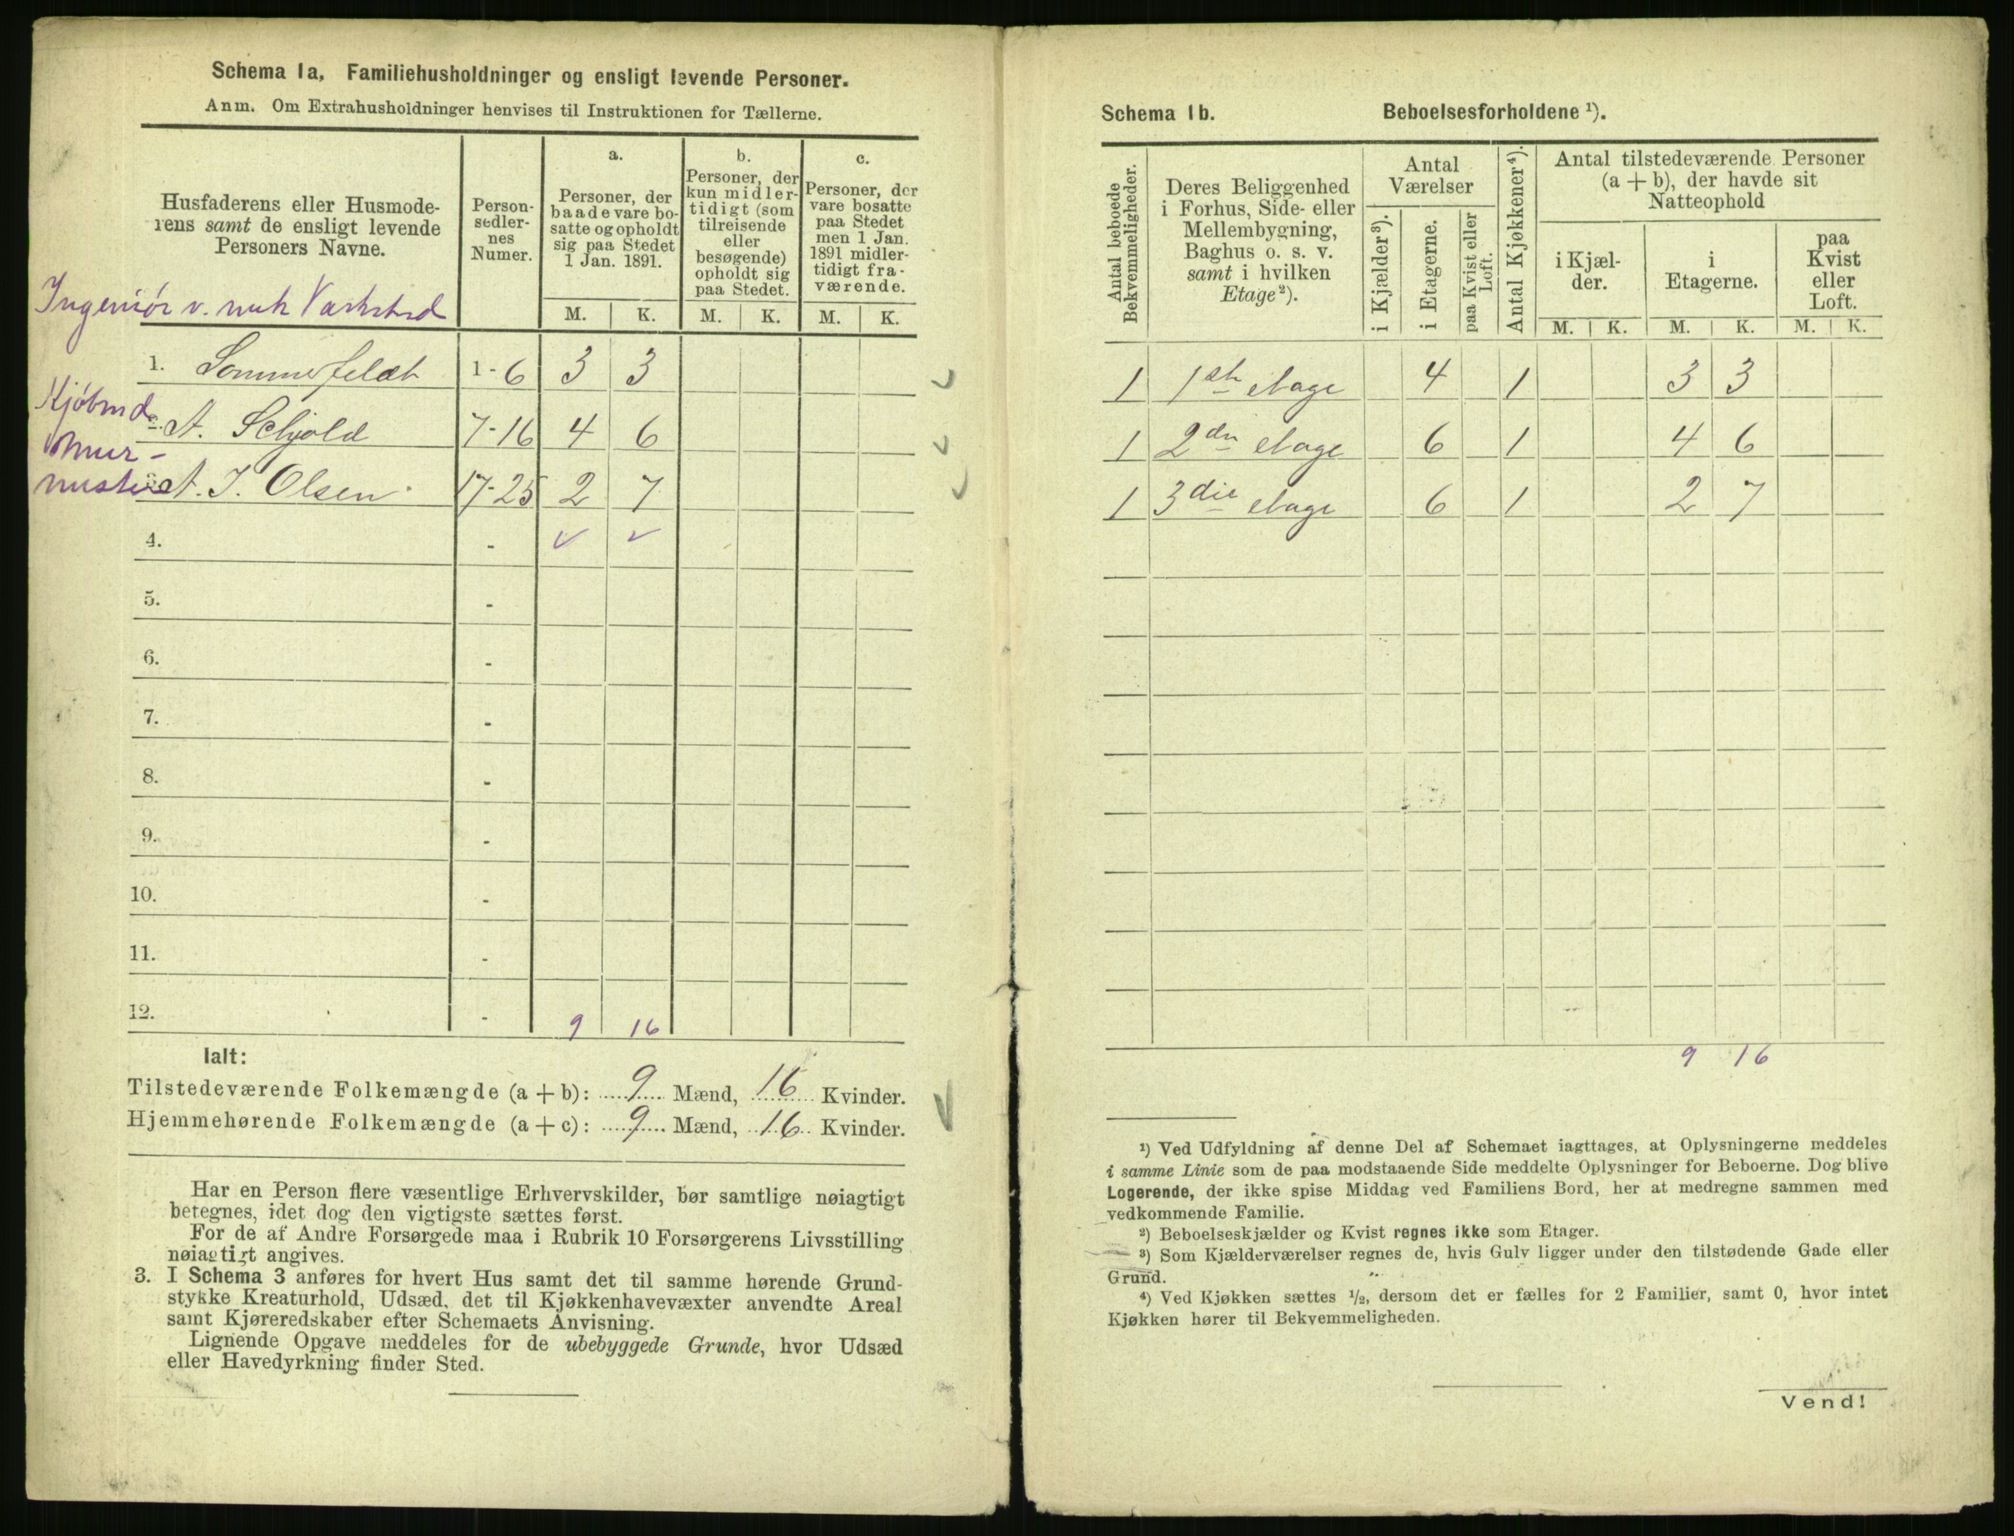 Schema 1a, Familiehusholdninger og ensligt levende Personer.
Anm. Om Extrahusholdninger henvises til Instruktionen for Tællerne.
Husfaderens eller Husmode-
rens samt de ensligt levende
Personers Navne.
Person-
sedler-
nes
Numer.
a.
Personer, der
baade vare bo-
satte og opholdt
sig paa Stedet
1 Jan. 1891.
b.
Personer, der
kun midler-
tidigt (som
tilreisende
eller
besøgende)
opholdt sig
paa Stedet.
c.
Personer, der
vare bosatte
paa Stedet
men 1 Jan.
1891 midler-
tidigt fra-
værende.
M. K. M. K. M. K.
Ingeniør v. mek Værksted
1. Sommerfeldt 1-6 3 3
Kjøbmd
2. A. Schjold 7-16 4 6
Mur-
mester
3. A. J. Olsen 17-25 2 7
4. -
5. -
6. -
7. -
8. -
9. -
10. -
11. -
12. - 9 16
Ialt:
Tilstedeværende Folkemængde (a + b): 9 Mænd, 16 Kvinder.
Hjemmehørende Folkemængde (a + c): 9 Mænd, 16 Kvinder.
Har en Person flere væsentlige Erhvervskilder, bør samtlige nøiagtigt
betegnes, idet dog den vigtigste sættes først.
For de af Andre Forsørgede maa i Rubrik 10 Forsørgerens Livsstilling
nøiagtigt angives.
3. I Schema 3 anføres for hvert Hus samt det til samme hørende Grund-
stykke Kreaturhold, Udsæd, det til Kjøkkenhavevæxter anvendte Areal
samt Kjøreredskaber efter Schemaets Anvisning.
Lignende Opgave meddeles for de ubebyggede Grunde, hvor Udsæd
eller Havedyrkning finder Sted.
Schema 1b. Beboelsesforholdene ¹).
Antal beboede
Bekvemmeligheder.
Deres Beliggenhed
i Forhus, Side- eller
Mellembygning,
Baghus o. s. v.
samt i hvilken
Etage²).
Antal
Værelser
i Kjælder³).
i Etagerne.
paa Kvist eller
Loft.
Antal Kjøkkener⁴).
Antal tilstedeværende Personer
(a + b), der havde sit
Natteophold
i Kjæl-
der.
i
Etagerne.
paa
Kvist
eller
Loft.
M. K. M. K. M. K.
1 1ste etage 4 1 3 3
1 2den etage 6 1 4 6
1 3die etage 6 1 2 7
9 16
¹) Ved Udfyldning af denne Del af Schemaet iagttages, at Oplysningerne meddeles
i samme Linie som de paa modstaaende Side meddelte Oplysninger for Beboerne. Dog blive
Logerende, der ikke spise Middag ved Familiens Bord, her at medregne sammen med
vedkommende Familie.
²) Beboelseskjælder og Kvist regnes ikke som Etager.
³) Som Kjælderværelser regnes de, hvis Gulv ligger under den tilstødende Gade eller
Grund.
⁴) Ved Kjøkken sættes ½, dersom det er fælles for 2 Familier, samt 0, hvor intet
Kjøkken hører til Bekvemmeligheden.
Vend!